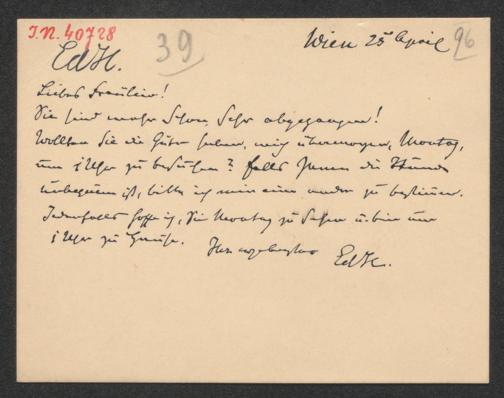 I.N. 40728
39
Wien 25 April 96
EdH.
Liebes Fräulein!
Sie sind mir schon sehr abgegangen!
Wollten Sie die Güte haben, mich übermorgen, Montag,
um 1 Uhr zu besuchen? Falls Ihnen die Stunde
unbequem ist, bitte ich mir eine andere zu bestimmen.
Jedenfalls hoffe ich, Sie Montag zu sehen u. bin um
1 Uhr zu Hause.
Ihr
EdH.